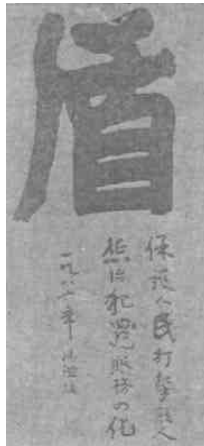 盾
保护人民打擊敌人
惩治犯罪服務四化
一九八年